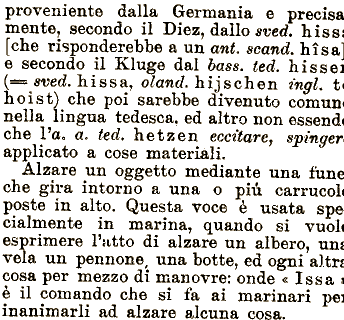 proveniente dalla Germania e precisa
mente, secondo il Diez, dallo sved. hiss
[che risponderebbe a un ant. scand. hîsa]
e secondo il Kluge dal bass. ted. hisse
(= sved. hissa, oland. hijschen ingl. t
hoist) che poi sarebbe divenuto comun
nella lingua tedesca, ed altro non essend
che l'a. a. ted. hetzen eccitare, spinger
applicato a cose materiali.
Alzare un oggetto mediante una fune
che gira intorno a una o più carrucol
poste in alto. Questa voce è usata spe
cialmente in marina, quando si vuol
esprimere l'atto di alzare un albero, una
vela un pennone, una botte, ed ogni altr
cosa per mezzo di manovre: onde « Issa »
è il comando che si fa ai marinari per
inanimarli ad alzare alcuna cosa.